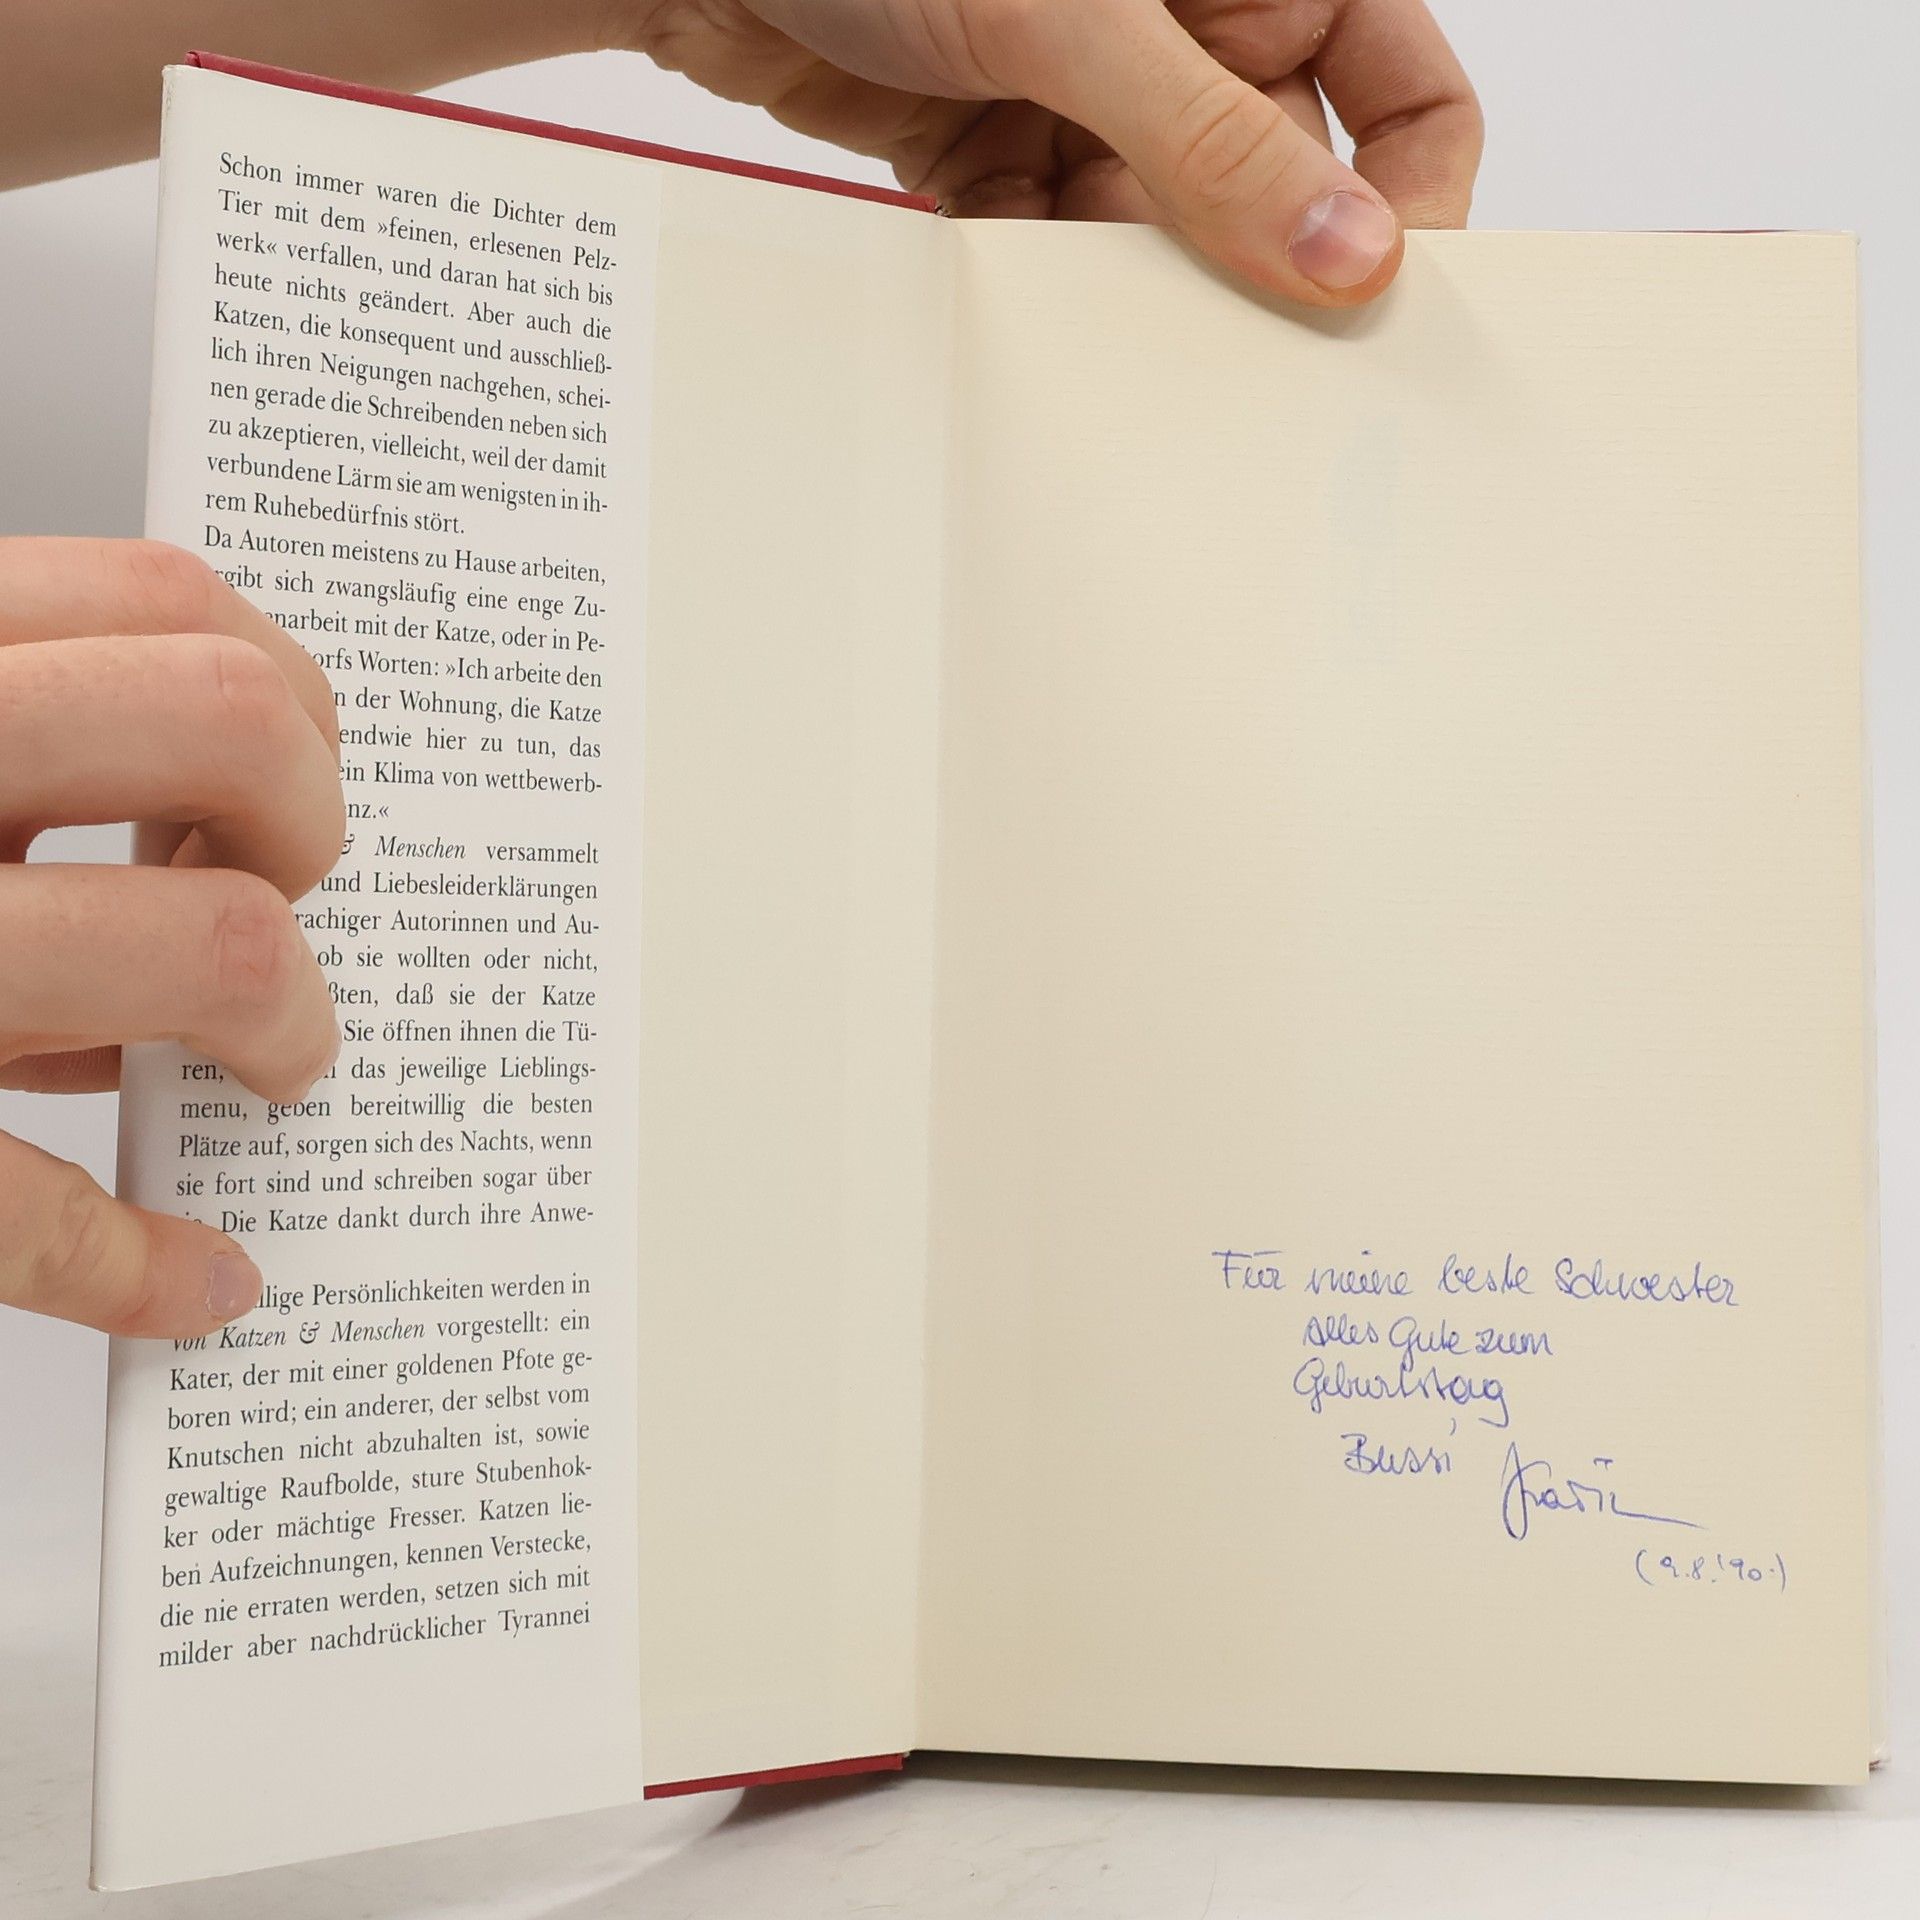 Schon immer waren die Dichter dem
Tier mit dem »feinen, erlesenen Pelz-
werk« verfallen, und daran hat sich bis
heute nichts geändert. Aber auch die
Katzen, die konsequent und ausschließ-
lich ihren Neigungen nachgehen, schei-
nen gerade die Schreibenden neben sich
zu akzeptieren, vielleicht, weil der damit
verbundene Lärm sie am wenigsten in ih-
rem Ruhebedürfnis stört.
Da Autoren meistens zu Hause arbeiten,
rgibt sich zwangsläufig eine enge Zu-
enarbeit mit der Katze, oder in Pe-
orfs Worten: »Ich arbeite den
n der Wohnung, die Katze
endwie hier zu tun, das
ein Klima von wettbewerb-
nz.«
& Menschen versammelt
und Liebesleiderklärungen
rachiger Autorinnen und Au-
ob sie wollten oder nicht,
ßten, daß sie der Katze
Sie öffnen ihnen die Tü-
ren, n das jeweilige Lieblings-
menu, geben bereitwillig die besten
Plätze auf, sorgen sich des Nachts, wenn
sie fort sind und schreiben sogar über
Die Katze dankt durch ihre Anwe-
llige Persönlichkeiten werden in
von Katzen & Menschen vorgestellt: ein
Kater, der mit einer goldenen Pfote ge-
boren wird; ein anderer, der selbst vom
Knutschen nicht abzuhalten ist, sowie
gewaltige Raufbolde, sture Stubenhok-
ker oder mächtige Fresser. Katzen lie-
ben Aufzeichnungen, kennen Verstecke,
die nie erraten werden, setzen sich mit
milder aber nachdrücklicher Tyrannei
Für meine beste Schwester
Alles Gute zum
Geburtstag
Bussi Karin
(9.8.'90.)